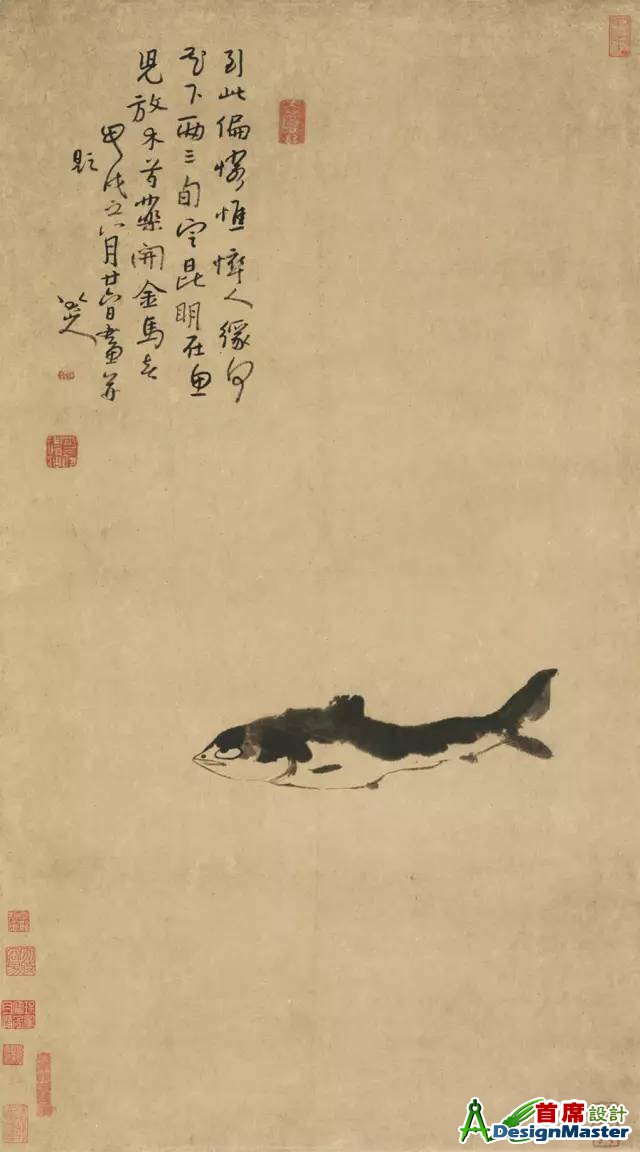 到此偏憐憔悴人緣何
花下兩三旬定昆明在魚
兒放木芍藥開金馬春
甲戌之六月廿六日畫并
題
八大山人
首席設計
ADesignMaster